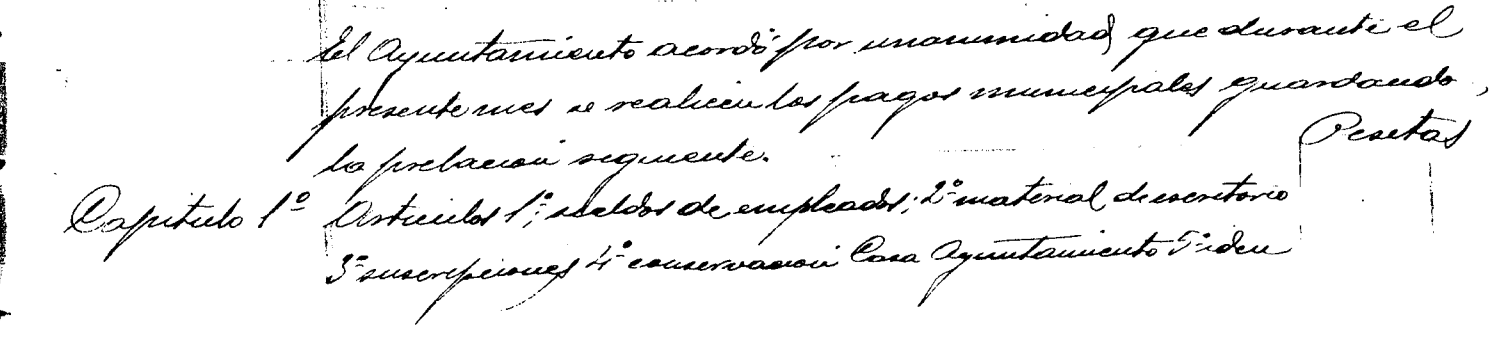 El Ayuntamiento acordó por unanimidad, que durante el
presente mes se realicen los pagos municipales guardando,
la prelación siguiente.
Pesetas
Capitulo 1º Articulos 1º; sueldos de empleados; 2º material de escritorio
3º suscrepciones 4º conservación Casa Ayuntamiento 5º iden